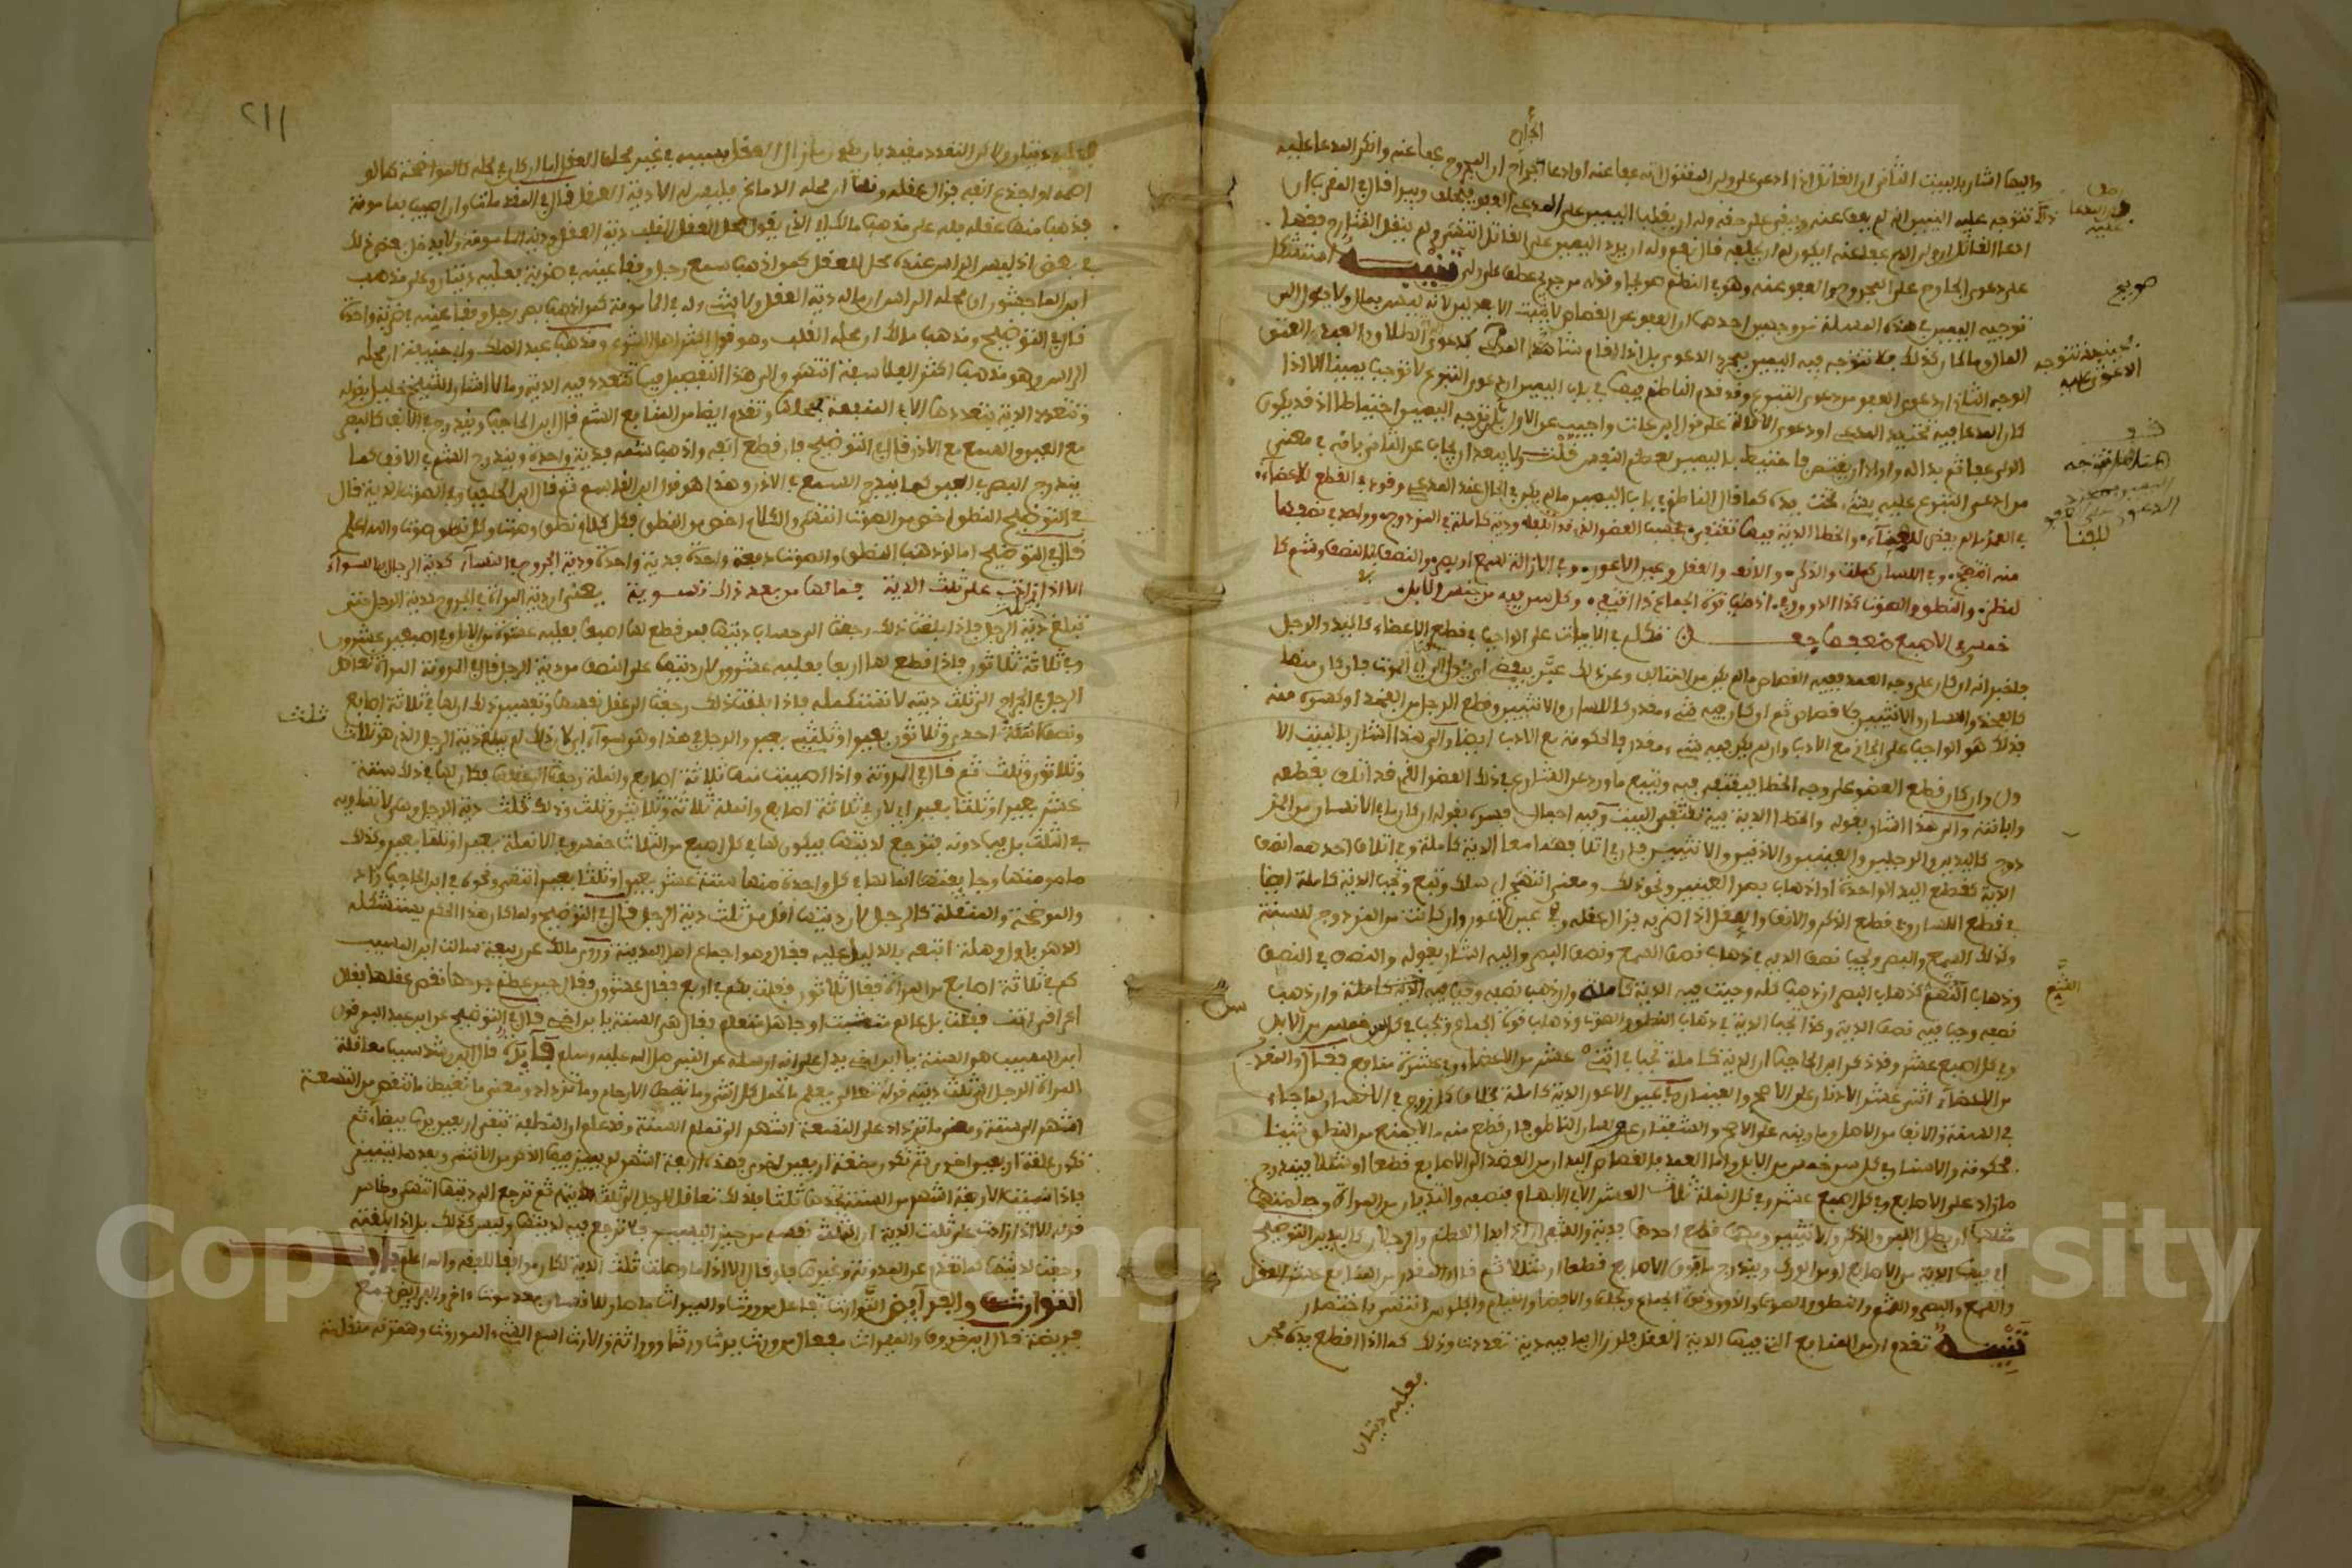 واليها اشار بالبيت الثاني ان القاتل اذا ادعى على ولي المقتول انه عفا عنه او ادعا الجارح ان المجروح عفا عنه وانكر المدعا عليه
ذلك تتوجه عليه اليمين انه لم يعف عنه ويبقى على حقه وله ان يقلب اليمين على المدعي العفو فيحلف ويبرا قال في المقرب
ادعا القاتل ان ولي الدم عفا عنه ايكون له ان يحلفه قال نعم وله ان يرد اليمين على القاتل انتهى
على دعوى الجارح على المجروح العفو عنه وهو في النظم هو لجا وقوله من جرح عطف على ولي تنبيه استشكل
توجيه اليمين في هذه المسئلة من وجهين احدهما ان العفو عن القصاص لا يثبت الا بعدلين لانه ليس بمال ولا يئول الى
المال وما كان كذلك فلا تتوجه فيه اليمين بمجرد الدعوى بل اذا اقام شاهدا المدعي كدعوى الطلاق والعتق
الوجه الثاني ان دعوى العفو من دعوى التبرع وقد قدم الناظم فيها في باب اليمين ان دعوى التبرع لا توجب يمينا الا اذا
كان المدعا فيه تحت يد المدعي او دعوى الاقالة على قول ابن عات واجيب عن الاول بتوجه اليمين احتياطا اذ قد يكون
الولي عفا ثم بدا له واراد ان يقتص فاحتيط باليمين لعظم النفوس قلت ولا يبعد ان يجاب عن الثاني بانه في معنى
من ادعى التبرع عليه بشيء تحت يده كما قال الناظم في باب اليمين ما لم يكن في الحال عند المدعي وقود في القطع للاعضاء
في العمد ما لم يفض للفناء والخطا الدية فيها تقتفي بحسب العضو الذي قد اتلفه ودية كاملة في المزدوج وواحد في نصفها
منه انتهج وفي اللسان كملت والذكر والانف والعقل وعين الاعور وفي ازالة لسمع او بصر والنصف للنصف وشم كا
لنظر والنطق والصوت كذا الذوق اذهاب قوة الجماع ذا اقتفي وكل سن فيه من جنس الابل
خمس وفي الاصبع ضعفها جعل تكلم في الابيات على الواجب في قطع الاعضاء كاليد والرجل
فاخبر انه ان كان على وجه العمد ففيه القصاص ما لم يكن من المتالف وعن ذلك عبر بيفض اي يؤدي الى الموت فان كان منها
كالفخذ واللسان والانثيين فلا قصاص ثم ان كان فيه شيء مقدر كاللسان والانثيين وقطع الرجل من الفخذ او كسره منه
فذلك هو الواجب على الجاني مع الادب وان لم يكن فيه شيء مقدر فالحكومة مع الادب ايضا والى هذا اشار بالبيت الا
ول وان كان قطع العضو على وجه الخطا فيقتفى فيه ويتبع ما ورد عن الشارع في ذلك العضو الذي قد اتلف بقطعه
وابانته والى هذا اشار بقوله والخطا الدية فيه تقتفي البيت وفيه اجمال فسره بقوله ان كان ما في الانسان من المز
دوج كاليدين والرجلين والعينين والاذنين والانثيين فان في اتلافهما معا الدية كاملة وفي اتلاف احدهما نصف
الدية كقطع اليد الواحدة او اذهاب بصر العينين ونحو ذلك ومعنى انتهج اي سلك وتبع وتجب الدية كاملة ايضا
في قطع اللسان وفي قطع الذكر والانف والعقل اذا ضربه فزال عقله وفي عين الاعور وان كانت من المزدوج للسنة
وكذلك السمع والبصر ويجب نصف الدية في ذهاب نصف السمع ونصف البصر واليه اشار بقوله والنصف في النصف
وذهاب الشم كذهاب البصر ان ذهب كله وجبت فيه الدية كاملة وان ذهب نصفه وجب فيه الدية كاملة وان ذهب
نصفه وجب فيه نصف الدية وكذا تجب الدية في ذهاب النطق والصوت وذهاب قوة الجماع وتجب في كل سن خمس من الابل
وفي كل اصبع عشر وقد ذكر ابن الحاجب ان الدية كاملة تجب في اثني عشر من الاعضاء وفي عشرة منافع فقال والمقدر
من الاعضاء اثنى عشر الاذنان على الاصح والعينان وفي عين الاعور الدية كاملة بخلاف كل زوج في الانسان لما جاء
في السنة والانف من الاصل ومارنه على الاصح والشفتان ولسان الناطق فان قطع منه ما لا يمنع من النطق شيئا
فحكومة والاسنان في كل سن خمس من الابل واما العمد فالقصاص اليدان من العضد الى الاصابع قطعا او شللا ويندرج
ما زاد على الاصابع وفي كل اصبع عشر وفي كل انملة ثلث العشر الا في الابهام فنصفه والثديان من المراة وحلمتهما
مثلهما ان بطل اللبن والذكر والانثيين وفيهما قطع احدهما فدية والشفران اذا بدا العظم والرجلان كاليدين التوضيح
اي فيهما الدية من الاصابع او من الورك ويندرج ما فوق الاصابع قطعا او شللا ثم قال والمقدر من المنافع عشر العقل
والسمع والبصر والشم والنطق والصوت والذوق وقوة الجماع ونحلة والافضا والقيام والجلوس انتهى باختصار
تنبيه تقدم ان من المنافع التي فيها الدية العقل فلو زال بما فيه دية تعددت وذلك كما اذا قطع يده فجن
فعليه ديتان
صح
المدعا عليه
صريح
فحينئذ تتوجه
الدعوى عليه
هنا هل تتوجه
اليمين بمجرد
الدعوى
للفنا
الشم
٢١١
فعليه ديتان ولاكن التعدد مقيد بان يقع زوال العقل بسببه في غير محل العقل اما ان كان في محله كالموضحة كما لو
اصمه او اجدع انفه فزال عقله وقلنا ان محله الدماغ فليس له الا دية العقل قال في المقدمات وان اصيب بمامومة
فذهب منها عقله فله على مذهب مالك الذي يقول محل العقل القلب دية العقل ودية المامومة ولا يدخل بعض ذلك
في بعض اذ ليس الراس عنده محل للعقل كمن اذهب سمع رجل وفقا عينه في ضربة فعليه ديتان وعلى مذهب
ابن الماجشون ان محله الراس ان ما له دية العقل ولا شيء له في المامومة كمن اذهب بصر رجل وفقا عينه في ضربة واحدة
قال في التوضيح ومذهب مالك ان محله القلب وهو قول اكثر اهل الشرع ومذهب عبد الملك وابي حنيفة ان محله
الراس وهو مذهب اكثر الفلاسفة انتهى والى هذا التفصيل فيما تتعدد فيه الدية وما لا اشار الشيخ خليل بقوله
وتتعدد الدية بتعددها الا في المنفعة بمحلها وتقدم ايضا من المنافع الشم قال ابن الحاجب ويندرج في الانف كالبصر
مع العين والسمع مع الاذن قال في التوضيح فان قطع انفه واذهب شمه فدية واحدة ويندرج الشم في الانف كما
يندرج البصر في العين كما يندرج السمع في الاذن وهذا هو قول ابن القاسم ثم قال ابن الحاجب وفي الصوت الدية قال
في التوضيح النطق اخص من الصوت انتهى والكلام اخص من النطق فكل كلام نطق وصوت وكل نطق صوت والله اعلم
قال في التوضيح اما لو ذهب النطق والصوت دفعة واحدة فدية واحدة ودية الجروح في النساء كدية الرجال بالسواء
الا اذا زادت على ثلث الدية فما لها من بعد ذاك تسوية يعني ان دية المراة في الجروح كدية الرجل حتى
تبلغ ثلث دية الرجل فاذا بلغت ذلك رجعت الى حساب ديتها فمن قطع لها اصبعا فعليه عشرة من الابل وفي اصبعين عشرون
وفي ثلاثة ثلاثون فاذا قطع لها اربعا فعليه عشرون لان ديتها على النصف من دية الرجل قال في المدونة المراة تعاقل
الرجل في الجراح الى ثلث ديته لا تستكمله فاذا بلغت ذلك رجعت الى عقل نفسها وتفسير ذلك ان لها في ثلاثة اصابع
ونصف انملة احدى وثلاثون بعيرا وثلثي بعير والرجل في هذا وهو سواء لان ذلك لم يبلغ دية الرجل الذي هو ثلاث
ثلث
وثلاثون وثلث ثم قال في المدونة واذا اصيبت منها ثلاثة اصابع وانملة رجعت الى عقلها فكان لها في ذلك ستة
عشر بعيرا وثلثا بعير اي لان في ثلاثة اصابع وانملة ثلاثة وثلاثين وثلث وذلك ثلث دية الرجل وهي لا تساويه
في الثلث بل فيما دونه فترجع لديتها فيكون لها في كل اصبع من الثلاث خمس وفي الانملة بعيرا وثلثا بعير وكذلك
مامومتها وجائفتها انما لها في كل واحدة منهما ستة عشر بعيرا وثلثا بعير انتهى ونحوه في ابن الحاجب وزاد
والموضحة والمنقلة كالرجل لان ديتها اقل من ثلث دية الرجل قال في التوضيح ولما كان هذا الحكم يستشكله
الانسان اول وهلة اتبعه بالدليل عليه فقال وهو اجماع اهل المدينة وروى مالك عن ربيعة سالت ابن المسيب
كم في ثلاثة اصابع من المراة فقال ثلاثون فقلت فكم في اربع فقال عشرون فقال حين عظم جرحها نقص عقلها فقال
اعراقي انت فقلت بل عالم متثبت او جاهل متعلم فقال هي السنة يا ابن اخي قال في التوضيح عن ابن عبد البر قول
ابن المسيب هي السنة يا ابن اخي يدل على انه ارسله عن النبي صلى الله عليه وسلم فائدة قال ابن رشد سبب معاقلة
المراة الرجل الى ثلث ديته قوله تعالى يعلم ما تحمل كل انثى وما تغيض الارحام وما تزداد ومعنى ما تغيض ما تنقص من التسعة
اشهر الى الستة ومعنى ما تزداد على التسعة اشهر الى تمام السنة وقد علم ان النطفة تبقى اربعين يوما بيضاء ثم
تكون علقة اربعين اخرى ثم تكون مضغة اربعين اخرى فهذه اربعة اشهر لم يتميز فيها الذكر من الانثى وبعدها يتميز
فاذا نسبت الاربعة اشهر من السنة تجدها ثلثا فلذلك تعاقل الرجل الى ثلث الدية ثم ترجع الى ديتها انتهى وظاهر
قوله الا اذا زادت على ثلث الدية ان الثلث نفسه من حيز اليسير فلا ترجع فيه لديتها وليس كذلك بل اذا بلغته
رجعت لديتها كما تقدم عن المدونة وغيرها فلو قال الا اذا ما وصلت ثلث الدية لكان موافقا للفقه والله اعلم باب
التوارث والفرائض التوارث تفاعل من ورث والميراث ما صار للانسان بعد موت اخر والفرائض جمع
فريضة قال ابن خروف والميراث مفعال من ورث يرث ورثا ووراثة والارث اسم الشيء الموروث وهمزته منقلبة